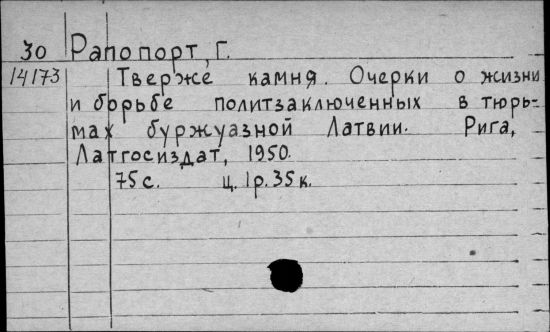 30 Рапопорт, Г.
14173 Тверже камня. Очерки о жизни
и борьбе политзаключенных в тюрь=
мах буржуазной Латвии. Рига,
Латгосиздат, 1950.
75 с. ц. 1 р. 35 к.